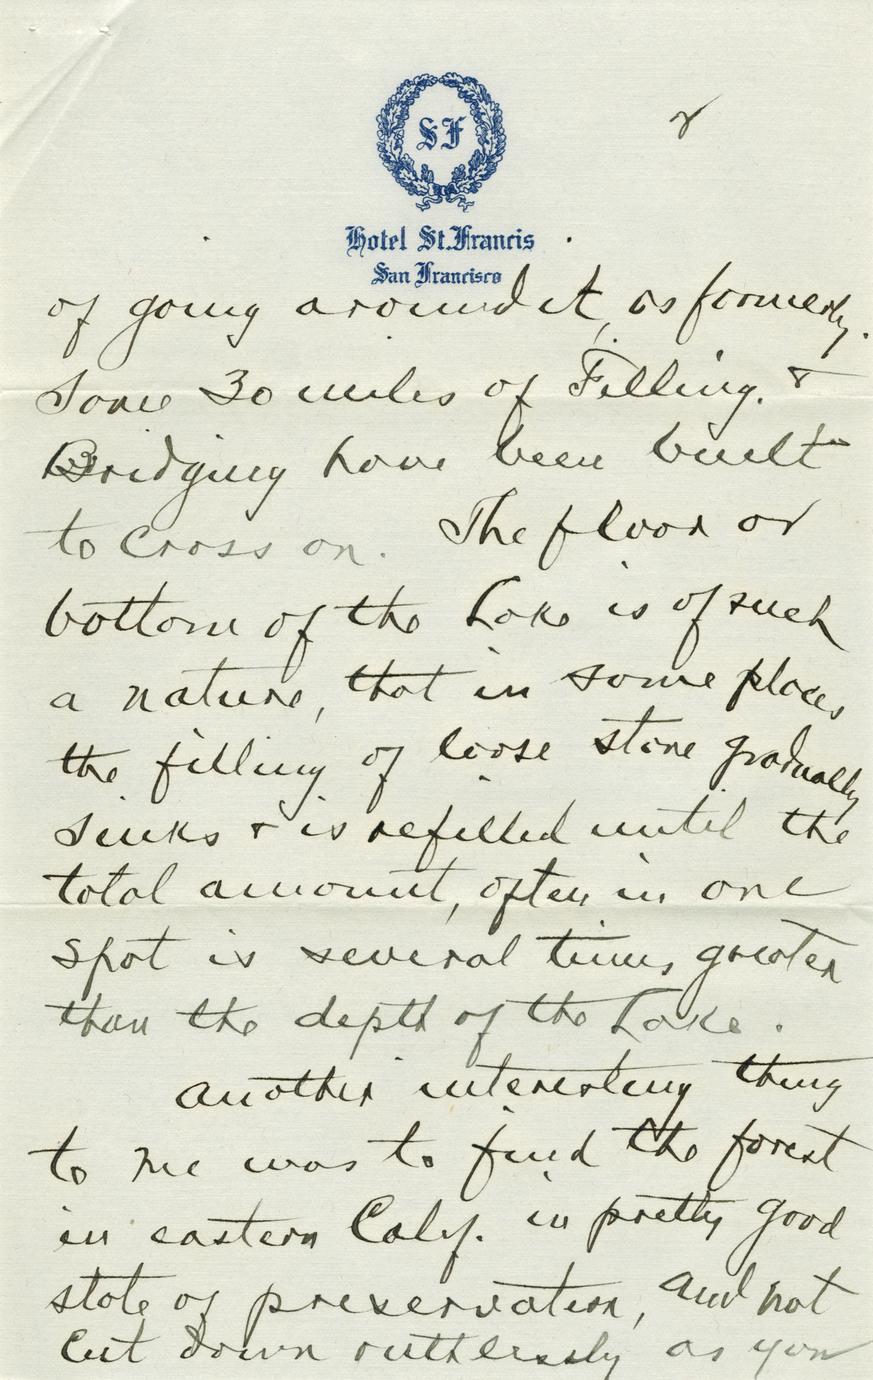 SF
Hotel St. Francis
San Francisco
of going around it, as formerly.
Some 30 miles of Filling. &
Bridging have been built
to cross on. The floor or
bottom of the Lake is of such
a nature, that in some places
the filling of loose stone gradually
sinks & is refilled until the
total amount, often in one
spot is several times greater
than the depth of the Lake.
Another interesting thing
to me was to find the forest
in eastern Calif. in pretty good
state of preservation, and not
cut down ruthlessly as you